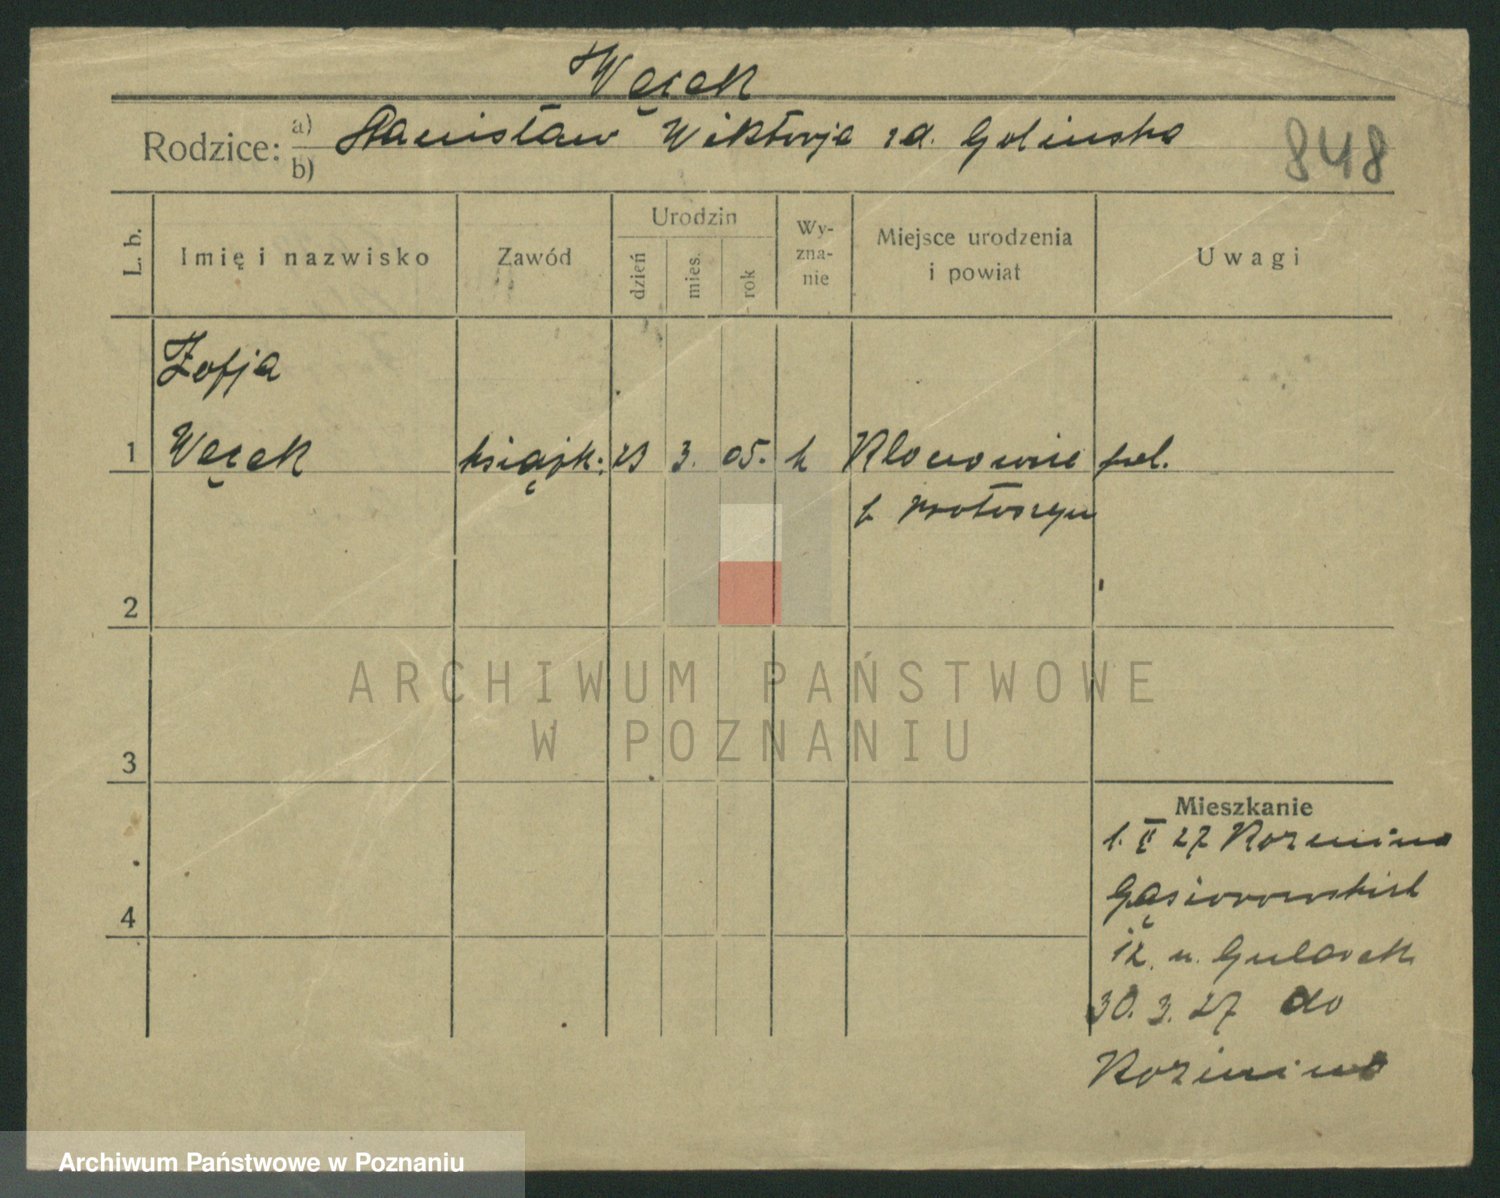 Węcek
Rodzice: a) Stanisław Wiktorja zd. Golinska
b)
848
L. b.
Imię i nazwisko
Zawód
Urodzin
dzień
mies.
rok
Wy-
zna-
nie
Miejsce urodzenia
i powiat
Uwagi
Zofja
1 Węcek książk. 23 3. 05. k pol.
p Krotoszyn
2
3
4
Mieszkanie
1. II 27 Kozmina
Gąsiorowskich
12. u. Gularek
30. 3. 27 do
Kozmina
ARCHIWUM PAŃSTWOWE
W POZNANIU
Archiwum Państwowe w Poznaniu